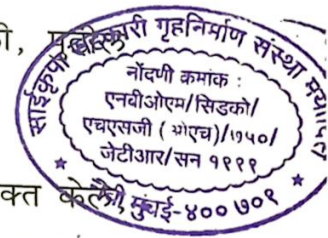 साईकृपा सहकारी गृहनिर्माण संस्था मर्यादित
नोंदणी कमांक :
एनबीओएम/सिडको/
एचएसजी (ओएच)/१५०/
जेटीआर/सन १९९९
मुंबई-४०० ७०१
क्त केले